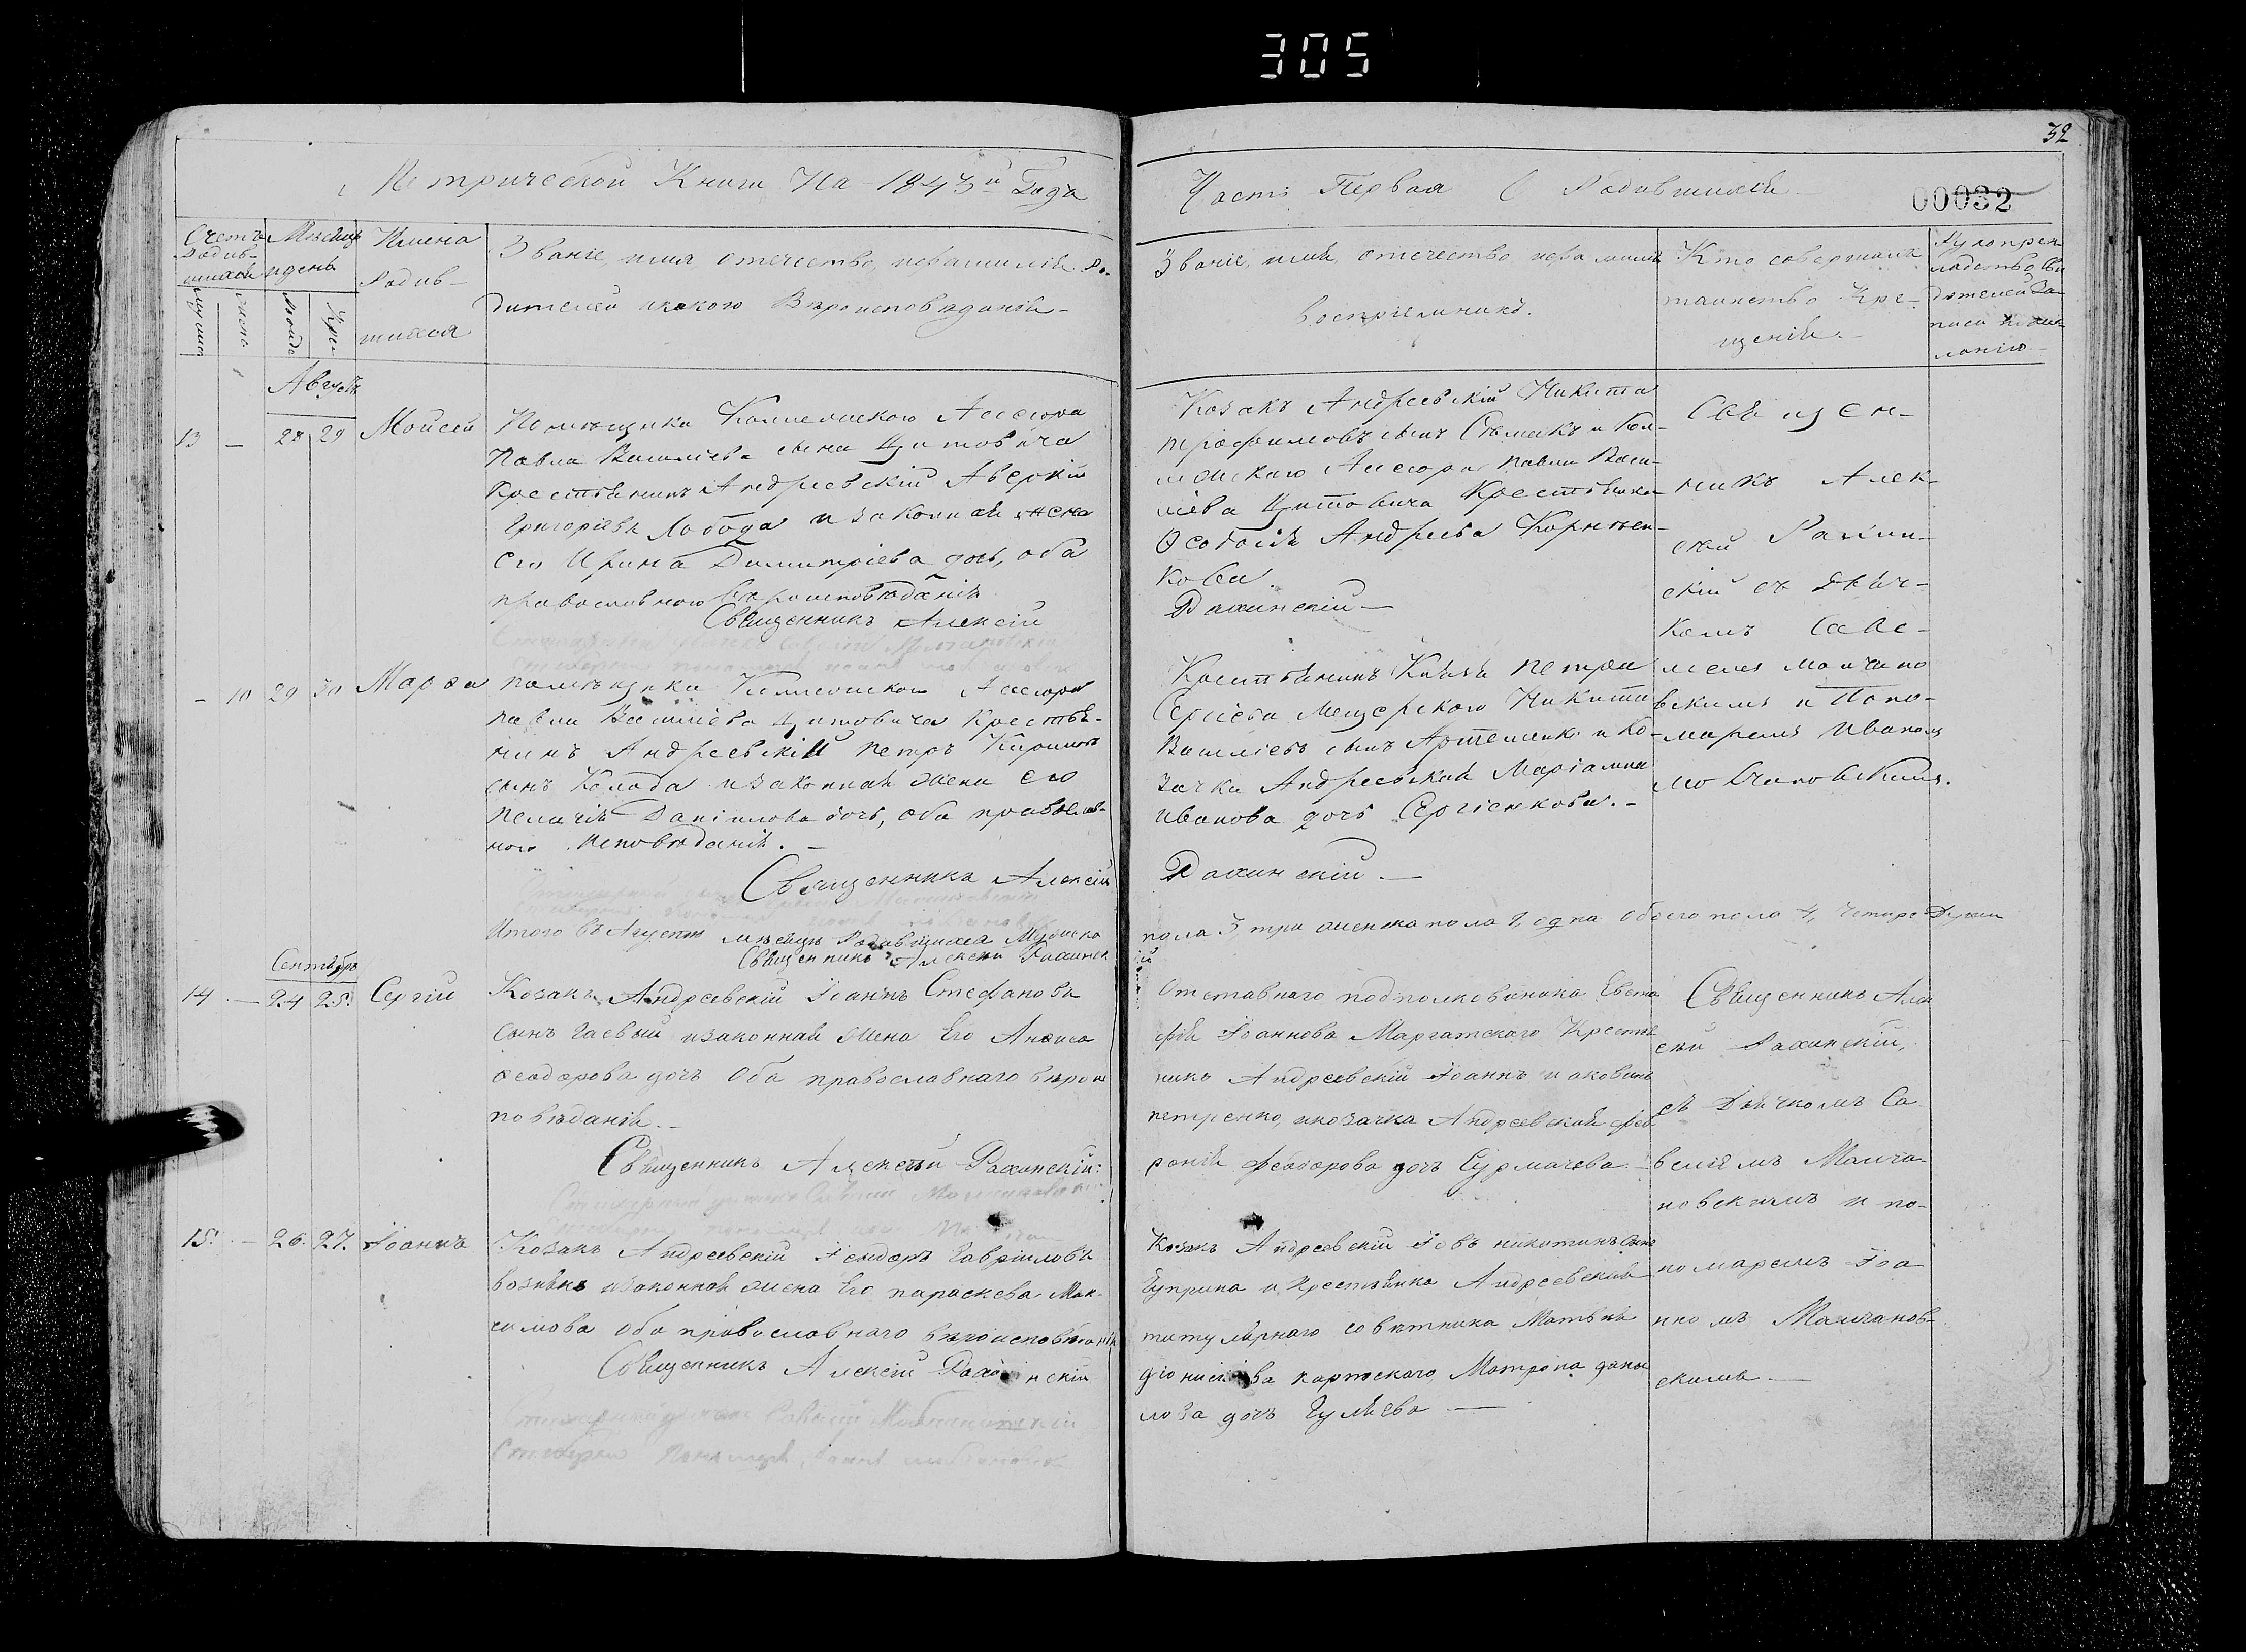 305
32
Метрической Книги На 1843й Года
Часть Первая О Родившихся
00032
Счетъ
Родив-
шихся
Мѣсяцъ
и день
Имена
Родив-
шихся
Званіе, имя отечество, и фамилія Ро-
дителей и какого Вѣроисповѣданія
Званіе, имя, отечество, и фамилія
воспріемниковъ.
Кто совершалъ
таинство Кре-
щенія.
Августъ
13 — 28 29 Мойсей
Помѣщика Коллежскаго Ассесора
Павла Василіева сына Цитовича
Крестьянинъ Андреевскій Аверкій
Григоріевъ Лобода и законная жена
его Ирина Димитріева дочь, оба
православного Вѣроисповѣданія
Священникъ Алексій
Козакъ Андреевскій Никита
Трофимовъ сынъ и Кол-
лежскаго Ассесора Павла Васи-
ліева Цитовича Крестьянка
Ѳеодосія Андреева Корнѣен-
кова.
Рахинскій —
Священ-
никъ Алек-
сей Рахин-
скій съ Дьяч-
комъ Саве-
ліемъ Молчано
вскимъ и Поно-
маремъ Иваномъ
Молчановскимъ.
— 10 29 30 Марѳа
Помѣщика Коллежскаго Ассесора
Павла Василіева Цитовича Крестья-
нинъ Андреевскій Петръ Кириловъ
сынъ Колода и законная жена его
Пелагія Даніилова дочь, оба православ-
ного исповѣданія. —
Священникъ Алексій
Крестьянинъ Князя Петра
Сергіева Мещерского Никита
Василіевъ сынъ Артеменко и Ко-
зачка Андреевская Маріамна
Иванова дочь Сергіенкова. —
Рахинскій. —
Итого въ Августѣ мѣсяцѣ Родившихся Мужеска
пола 3, три женска пола 1, одна обоего пола 4, четыре Души
Священникъ Алексій Рахинск
ій
Сентябрь
14 — 24 25. Сергій
Козакъ Андреевскій Іоаннъ Стефановъ
сынъ Гаевый и законная жена Его Анѳиса
Ѳеодорова дочь Оба православнаго вѣрои
повѣданія. —
Священникъ Алексѣй Рахинскій:
Отставнаго подполковника Евста
фія Іоаннова Маргатскаго Крестья
нинъ Андреевскій Іоаннъ Іаковинъ
петренко, и козачка Андреевская фев
ронія феодорова дочь Сурмачева —
Священникъ Але
ксѣй Рахинскій,
съ Дьячкомъ Са
веліемъ Молча-
новскимъ и по-
номаремъ Іоа
нномъ Молчанов-
скимъ —
15. — 26. 27. Іоаннъ
Козакъ Андреевскій Гавріиловъ
вознякъ и законная жена Его параскева Мак-
симова оба православнаго вѣроисповѣданія
Священникъ Алексій Рахинскій
Козакъ Андреевскій Іовъ никитинъ сынъ
Чуприна и Крестьянка Андреевская
титулярнаго совѣтника Матвѣя
діонисіева Матрона дани
лова дочь Гуляева —